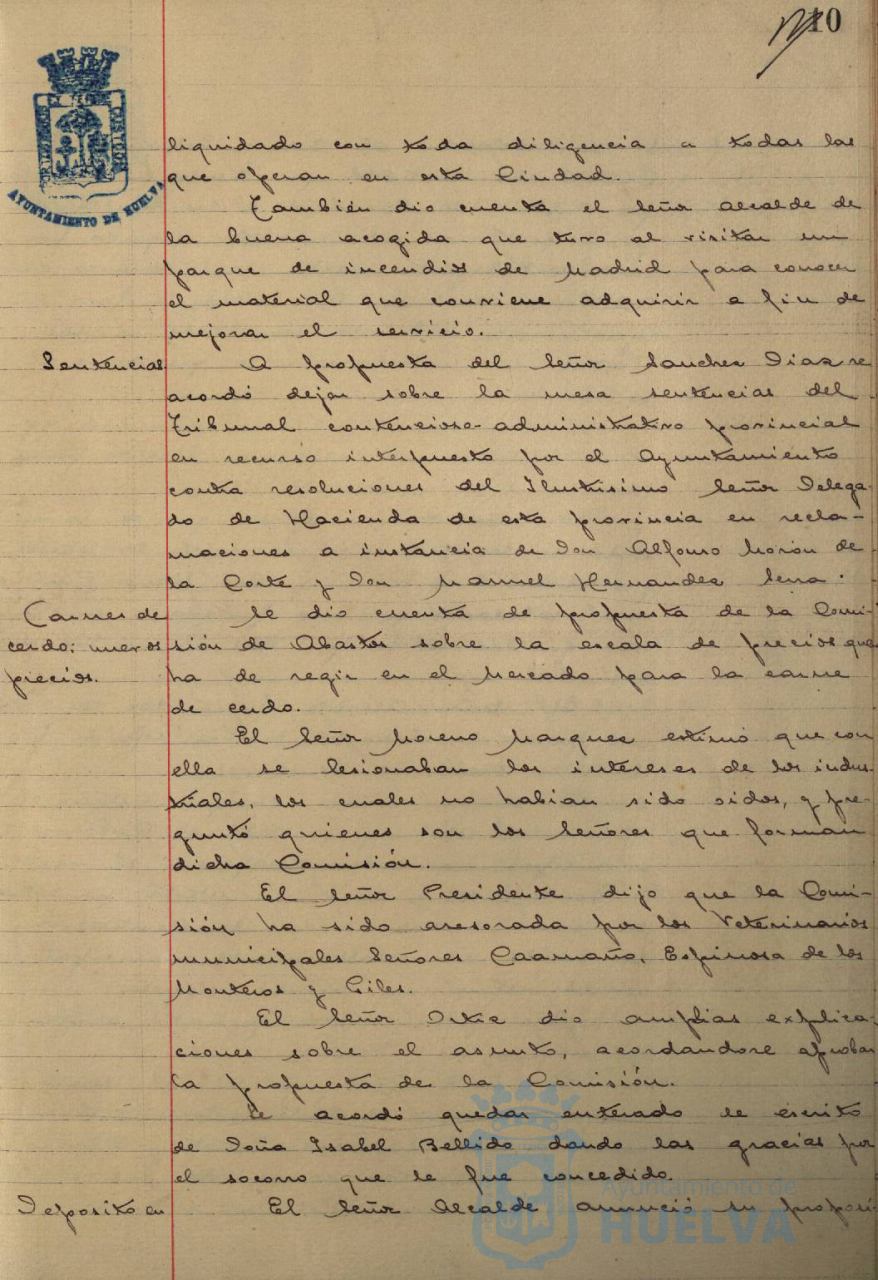 10
AYUNTAMIENTO DE HUELVA
liquidado con toda diligencia a todas las
que operan en esta Ciudad.
También dio cuenta el señor alcalde de
la buena acogida que tuvo al visitar un
parque de incendios de Madrid para conocer
el material que conviene adquirir a fin de
mejorar el servicio.
Sentencias
A propuesta del señor Sanchez Diaz se
acordó dejar sobre la mesa sentencias del
Tribunal contencioso-administrativo provincial
en recurso interpuesto por el Ayuntamiento
contra resoluciones del Ilustrisimo Señor Delega-
do de Hacienda de esta provincia en recla-
maciones a instancia de Don Alfonso Morón de
la Corte y Don Manuel Hernandez Serra.
Carnes de
cerdo: nuevos
precios.
Se dio cuenta de propuesta de la Comi-
sión de Abastos sobre la escala de precios que
ha de regir en el Mercado para la carne
de cerdo.
El señor Moreno Marquez estimó que con
ella se lesionaban los intereses de los indus-
triales, los cuales no habian sido oidos, y pre-
guntó quienes son los señores que forman
dicha Comisión.
El señor Presidente dijo que la Comi-
sión ha sido asesorada por los Veterinarios
municipales Señores Caamaño, Espinosa de los
Monteros y Giles.
El señor Ortiz dio amplias explica-
ciones sobre el asunto, acordandose aprobar
la propuesta de la Comisión.
Se acordó quedar enterado de escrito
de Doña Isabel Bellido dando las gracias por
el socorro que le fue concedido.
Deposito en
El señor Alcalde anunció su proposi-
Ayuntamiento de
HUELVA